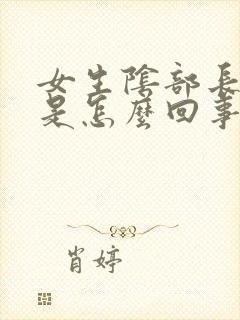 女生陰部長
是怎麼回事
肖婷